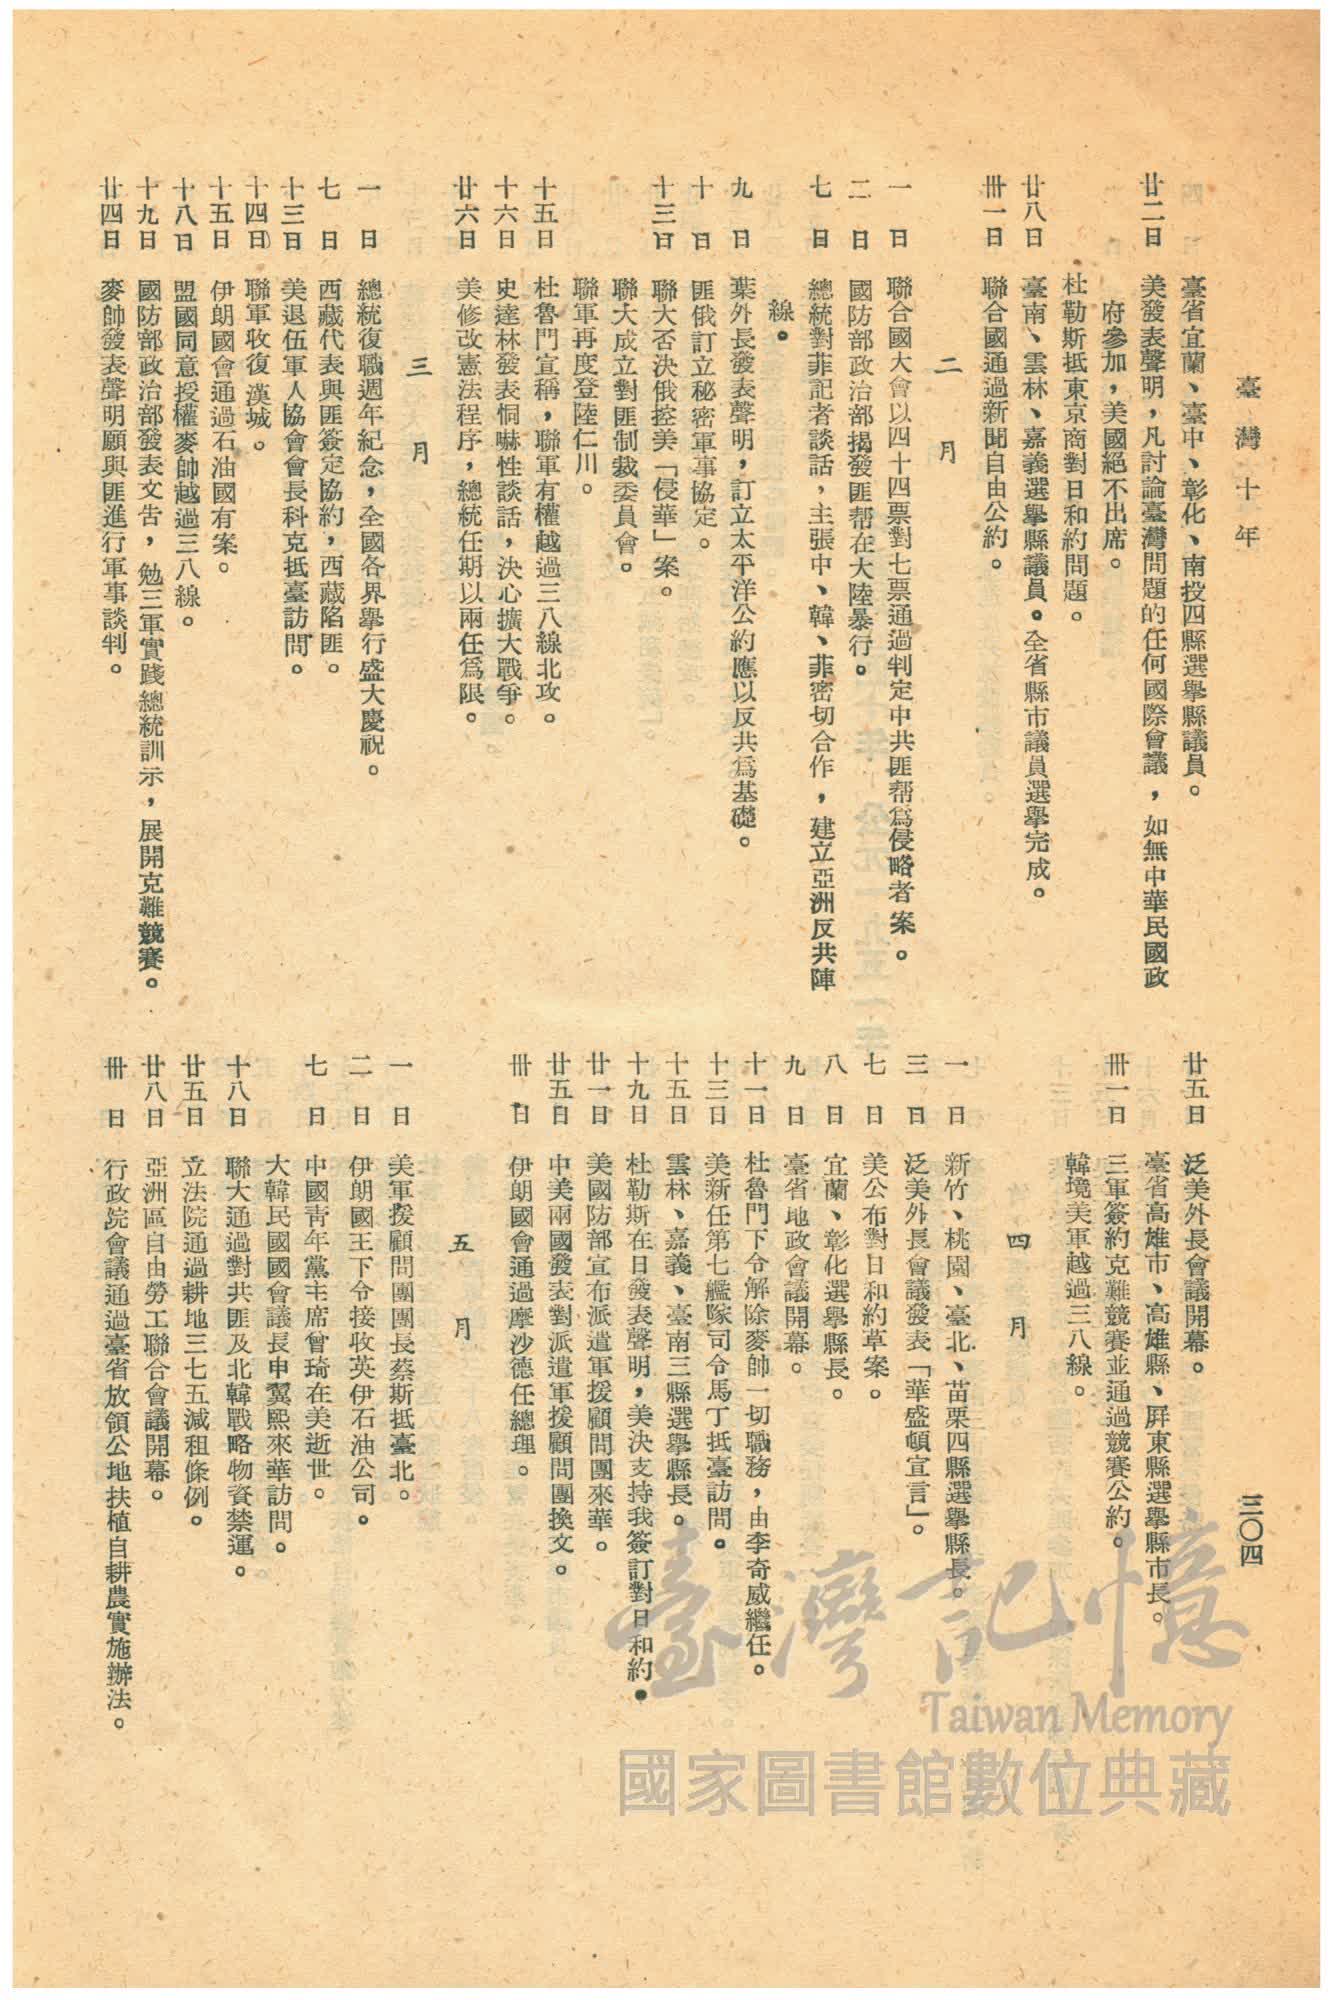 臺灣十年
三〇四
臺省宜蘭、臺中、彰化、南投四縣選舉縣議員。
廿二日　美發表聲明，凡討論臺灣問題的任何國際會議，如無中華民國政
府參加，美國絕不出席。
杜勒斯抵東京商對日和約問題。
廿八日　臺南、雲林、嘉義選舉縣議員。全省縣市議員選舉完成。
卅一日　聯合國通過新聞自由公約。
二月
一日　聯合國大會以四十四票對七票通過判定中共匪帮爲侵略者案。
二日　國防部政治部揭發匪帮在大陸暴行。
七日　總統對菲記者談話，主張中、韓、菲密切合作，建立亞洲反共陣
線。
九日　葉外長發表聲明，訂立太平洋公約應以反共爲基礎。
十日　匪俄訂立秘密軍事協定。
十三日　聯大否決俄控美「侵華」案。
聯大成立對匪制裁委員會。
聯軍再度登陸仁川。
十五日　杜魯門宣稱，聯軍有權越過三八線北攻。
十六日　史達林發表恫嚇性談話，決心擴大戰爭。
廿六日　美修改憲法程序，總統任期以兩任爲限。
三月
一日　總統復職週年紀念，全國各界舉行盛大慶祝。
七日　西藏代表與匪簽定協約，西藏陷匪。
十三日　美退伍軍人協會會長科克抵臺訪問。
十四日　聯軍收復漢城。
十五日　伊朗國會通過石油國有案。
十八日　盟國同意授權麥帥越過三八線。
十九日　國防部政治部發表文告，勉三軍實踐總統訓示，展開克難競賽。
廿四日　麥帥發表聲明願與匪進行軍事談判。
廿五日　泛美外長會議開幕。
臺省高雄市、高雄縣、屏東縣選舉縣市長。
卅一日　三軍簽約克難競賽並通過競賽公約。
韓境美軍越過三八線。
四月
一日　新竹、桃園、臺北、苗栗四縣選舉縣長。
三日　泛美外長會議發表「華盛頓宣言」。
七日　美公布對日和約草案。
八日　宜蘭、彰化選舉縣長。
九日　臺省地政會議開幕。
十一日　杜魯門下令解除麥帥一切職務，由李奇威繼任。
十三日　美新任第七艦隊司令馬丁抵臺訪問。
十五日　雲林、嘉義、臺南三縣選舉縣長。
十九日　杜勒斯在日發表聲明，美決支持我簽訂對日和約。
廿一日　美國防部宣布派遣軍援顧問團來華。
廿五日　中美兩國發表對派遣軍援顧問團換文。
卅日　伊朗國會通過摩沙德任總理。
五月
一日　美軍援顧問團團長蔡斯抵臺北。
二日　伊朗國王下令接收英伊石油公司。
七日　中國靑年黨主席曾琦在美逝世。
大韓民國國會議長申翼熙來華訪問。
十八日　聯大通過對共匪及北韓戰略物資禁運。
廿五日　立法院通過耕地三七五減租條例。
廿八日　亞洲區自由勞工聯合會議開幕。
卅日　行政院會議通過臺省放領公地扶植自耕農實施辦法。
臺灣記憶
Taiwan Memory
國家圖書館數位典藏